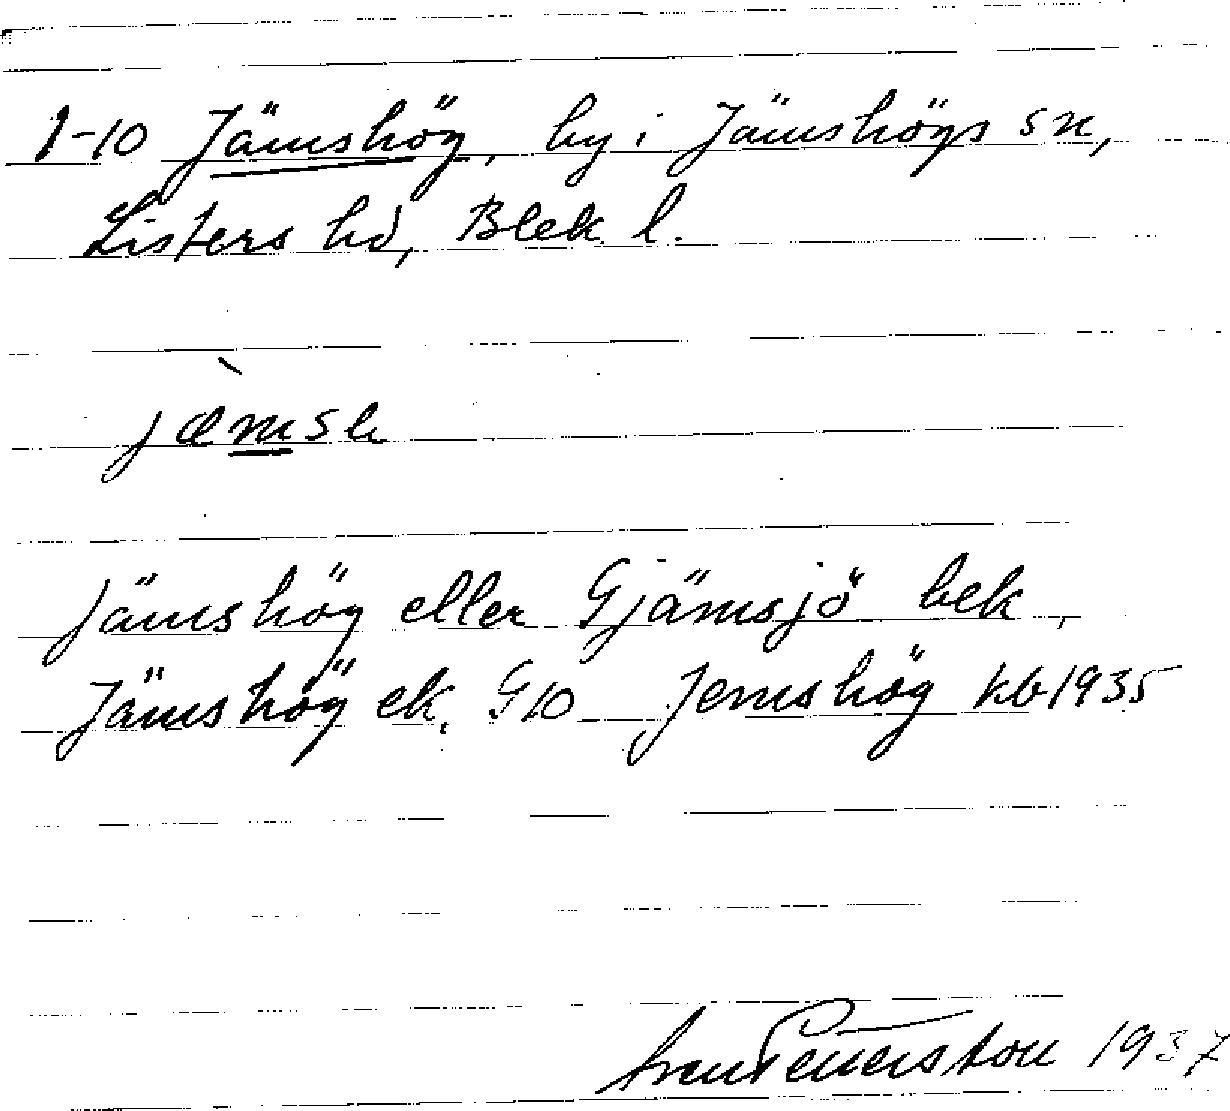 1-10 Jämshög, by i Jämshögs sn,
Listers hd, Blek. l.
jæmsh
Jämshög eller Gjämsjö bek,
Jämshög ek. G10 Jemshög kb 1935
1937